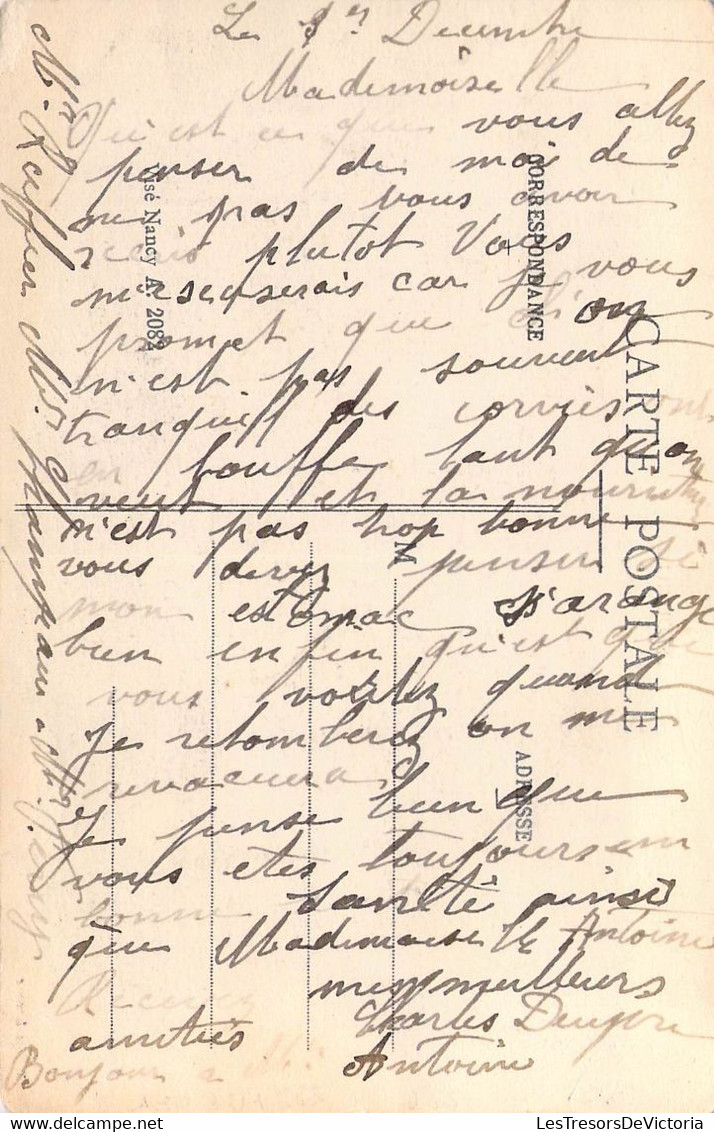 Le 1er Decembre
Mademoiselle
Qu'est ce que vous allez
penser de moi de
ne pas vous avoir
recris plutot Vous
m'escuserais car je vous
promet que l'on
n'est pas souvent
tranquill des corvées ont
en bouffe tant qu'on
veut et la nourriture
n'est pas trop bonne
vous devez penser si
mon estomac s'arange
bien enfin qu'est que
vous voulez quand
je retomberez on me
revacuera
Je pense bien que
vous etes toujours en
bonne santé ainsi
que Mademoiselle Antoine
Recevez mes meilleurs
amitiés Charles
Antoine
Bonjour a
CORRESPONDANCE
CARTE POSTALE
ADRESSE
M
Visé Nancy A. 2082
LesTresorsDeVictoria.com